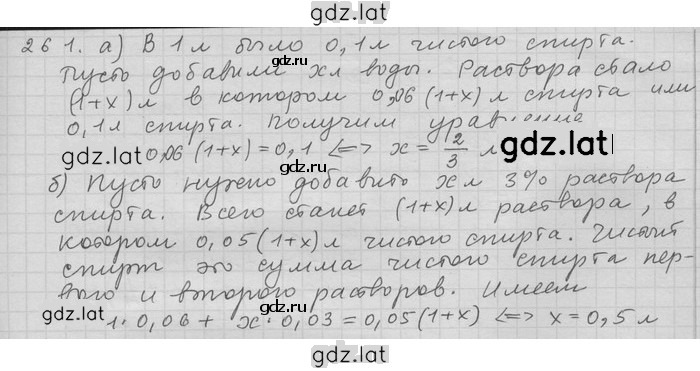 gdz.lat
261. а) В 1 л было 0,1 л чистого спирта.
Пусть добавили x л воды. Раствора стало
gdz.lat
(1+x) л в котором 0,06 (1+x) л спирта или
0,1 л спирта. Получим уравнение
gdz.lat 0,06 (1+x) = 0,1 <=> x = 2/3 л gdz.lat
б) Пусть нужно добавить x л 3% раствора
спирта. Всего станет (1+x) л раствора, в
gdz.lat
котором 0,05 (1+x) л чистого спирта. Чистый
спирт это сумма чистого спирта пер-
вого и второго растворов. Имеем
gdz.lat gdz.lat
1·0,06 + x·0,03 = 0,05 (1+x) <=> x = 0,5 л
gdz.lat